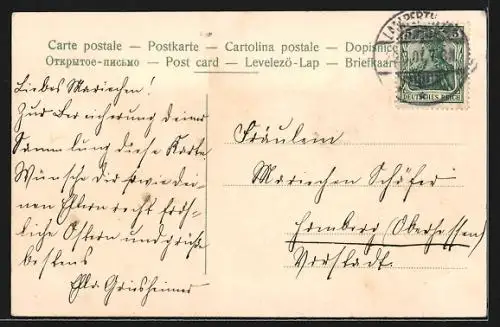 Carte postale — Postkarte — Cartolina postale — Dopisnice
Открытое-письмо — Post card — Levelező-Lap — Briefkaart
5
DEUTSCHES REICH
Liebes Mariechen!
Zur Bereicherung deiner
Sammlung diese Karte
Wünsche dir sowie dei-
nen Eltern recht fröh-
liche Ostern und grüße
bestens
Griesheimer
Fräulein
Mariechen Schäfer
Homberg (Oberhessen)
Vorstadt.